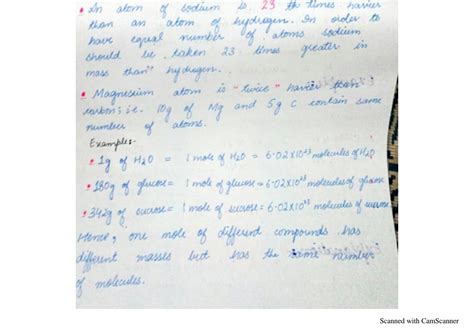 • An atom of sodium is 23 th times havier
than an atom of hydrogen. In order to
have equal number of atoms sodium
should be taken 23 times greater in
mass than hydrogen.
• Magnesium atom is "twice" havier than
carbon; i.e. 10g of Mg and 5g C contain same
number of atoms.
Examples:-
• 1g of H2O = 1 mole of H2O = 6.02X10²³ molecules of H2O
• 180g of glucose = 1 mole of glucose = 6.02X10²³ molecules of glucose
• 342g of sucrose = 1 mole of sucrose = 6.02X10²³ molecules of sucrose
Hence, one mole of different compounds has
different masses but has the same number
of molecules.
Scanned with CamScanner